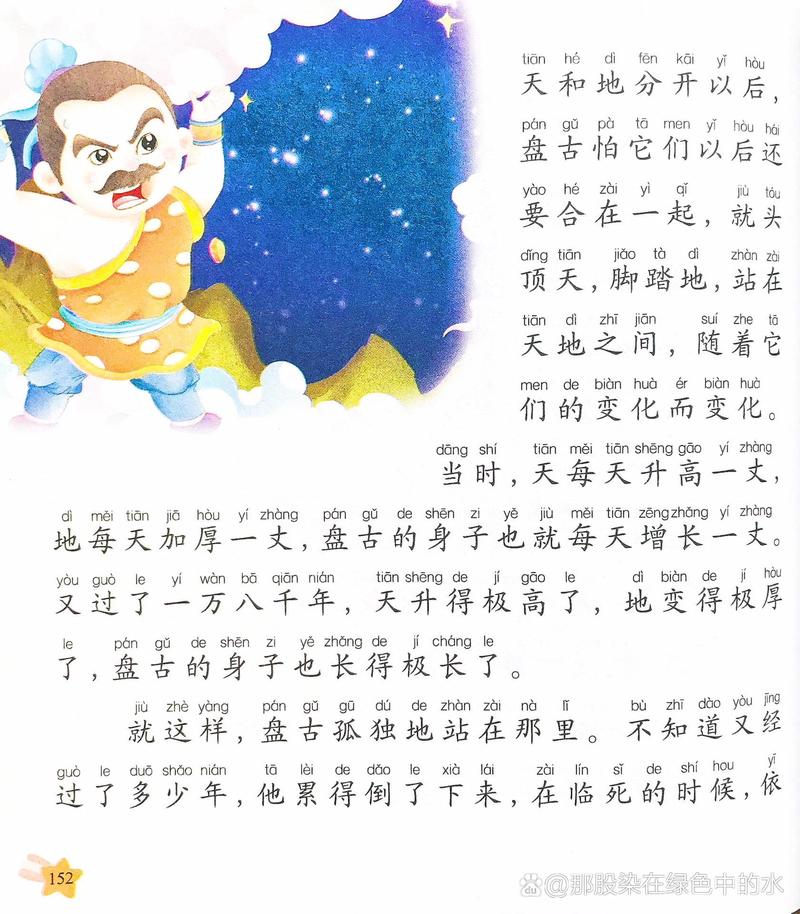 tiān hé dì fēn kāi yǐ hòu
天和地分开以后，
pán gǔ pà tā men yǐ hòu hái
盘古怕它们以后还
yào hé zài yì qǐ jiù tóu
要合在一起，就头
dǐng tiān jiǎo tà dì zhàn zài
顶天，脚踏地，站在
tiān dì zhī jiān suí zhe tā
天地之间，随着它
men de biàn huà ér biàn huà
们的变化而变化。
dāng shí tiān měi tiān shēng gāo yí zhàng
当时，天每天升高一丈，
dì měi tiān jiā hòu yí zhàng pán gǔ de shēn zi yě jiù měi tiān zēng zhǎng yí zhàng
地每天加厚一丈，盘古的身子也就每天增长一丈。
yòu guò le yí wàn bā qiān nián tiān shēng de jí gāo le dì biàn de jí hòu
又过了一万八千年，天升得极高了，地变得极厚
le pán gǔ de shēn zi yě zhǎng de jí cháng le
了，盘古的身子也长得极长了。
jiù zhè yàng pán gǔ gū dú de zhàn zài nà lǐ bù zhī dào yòu jīng
就这样，盘古孤独地站在那里。不知道又经
guò le duō shǎo nián tā lèi de dǎo le xià lái zài lín sǐ de shí hou yī
过了多少年，他累得倒了下来，在临死的时候，依
152
du @那股染在绿色中的水